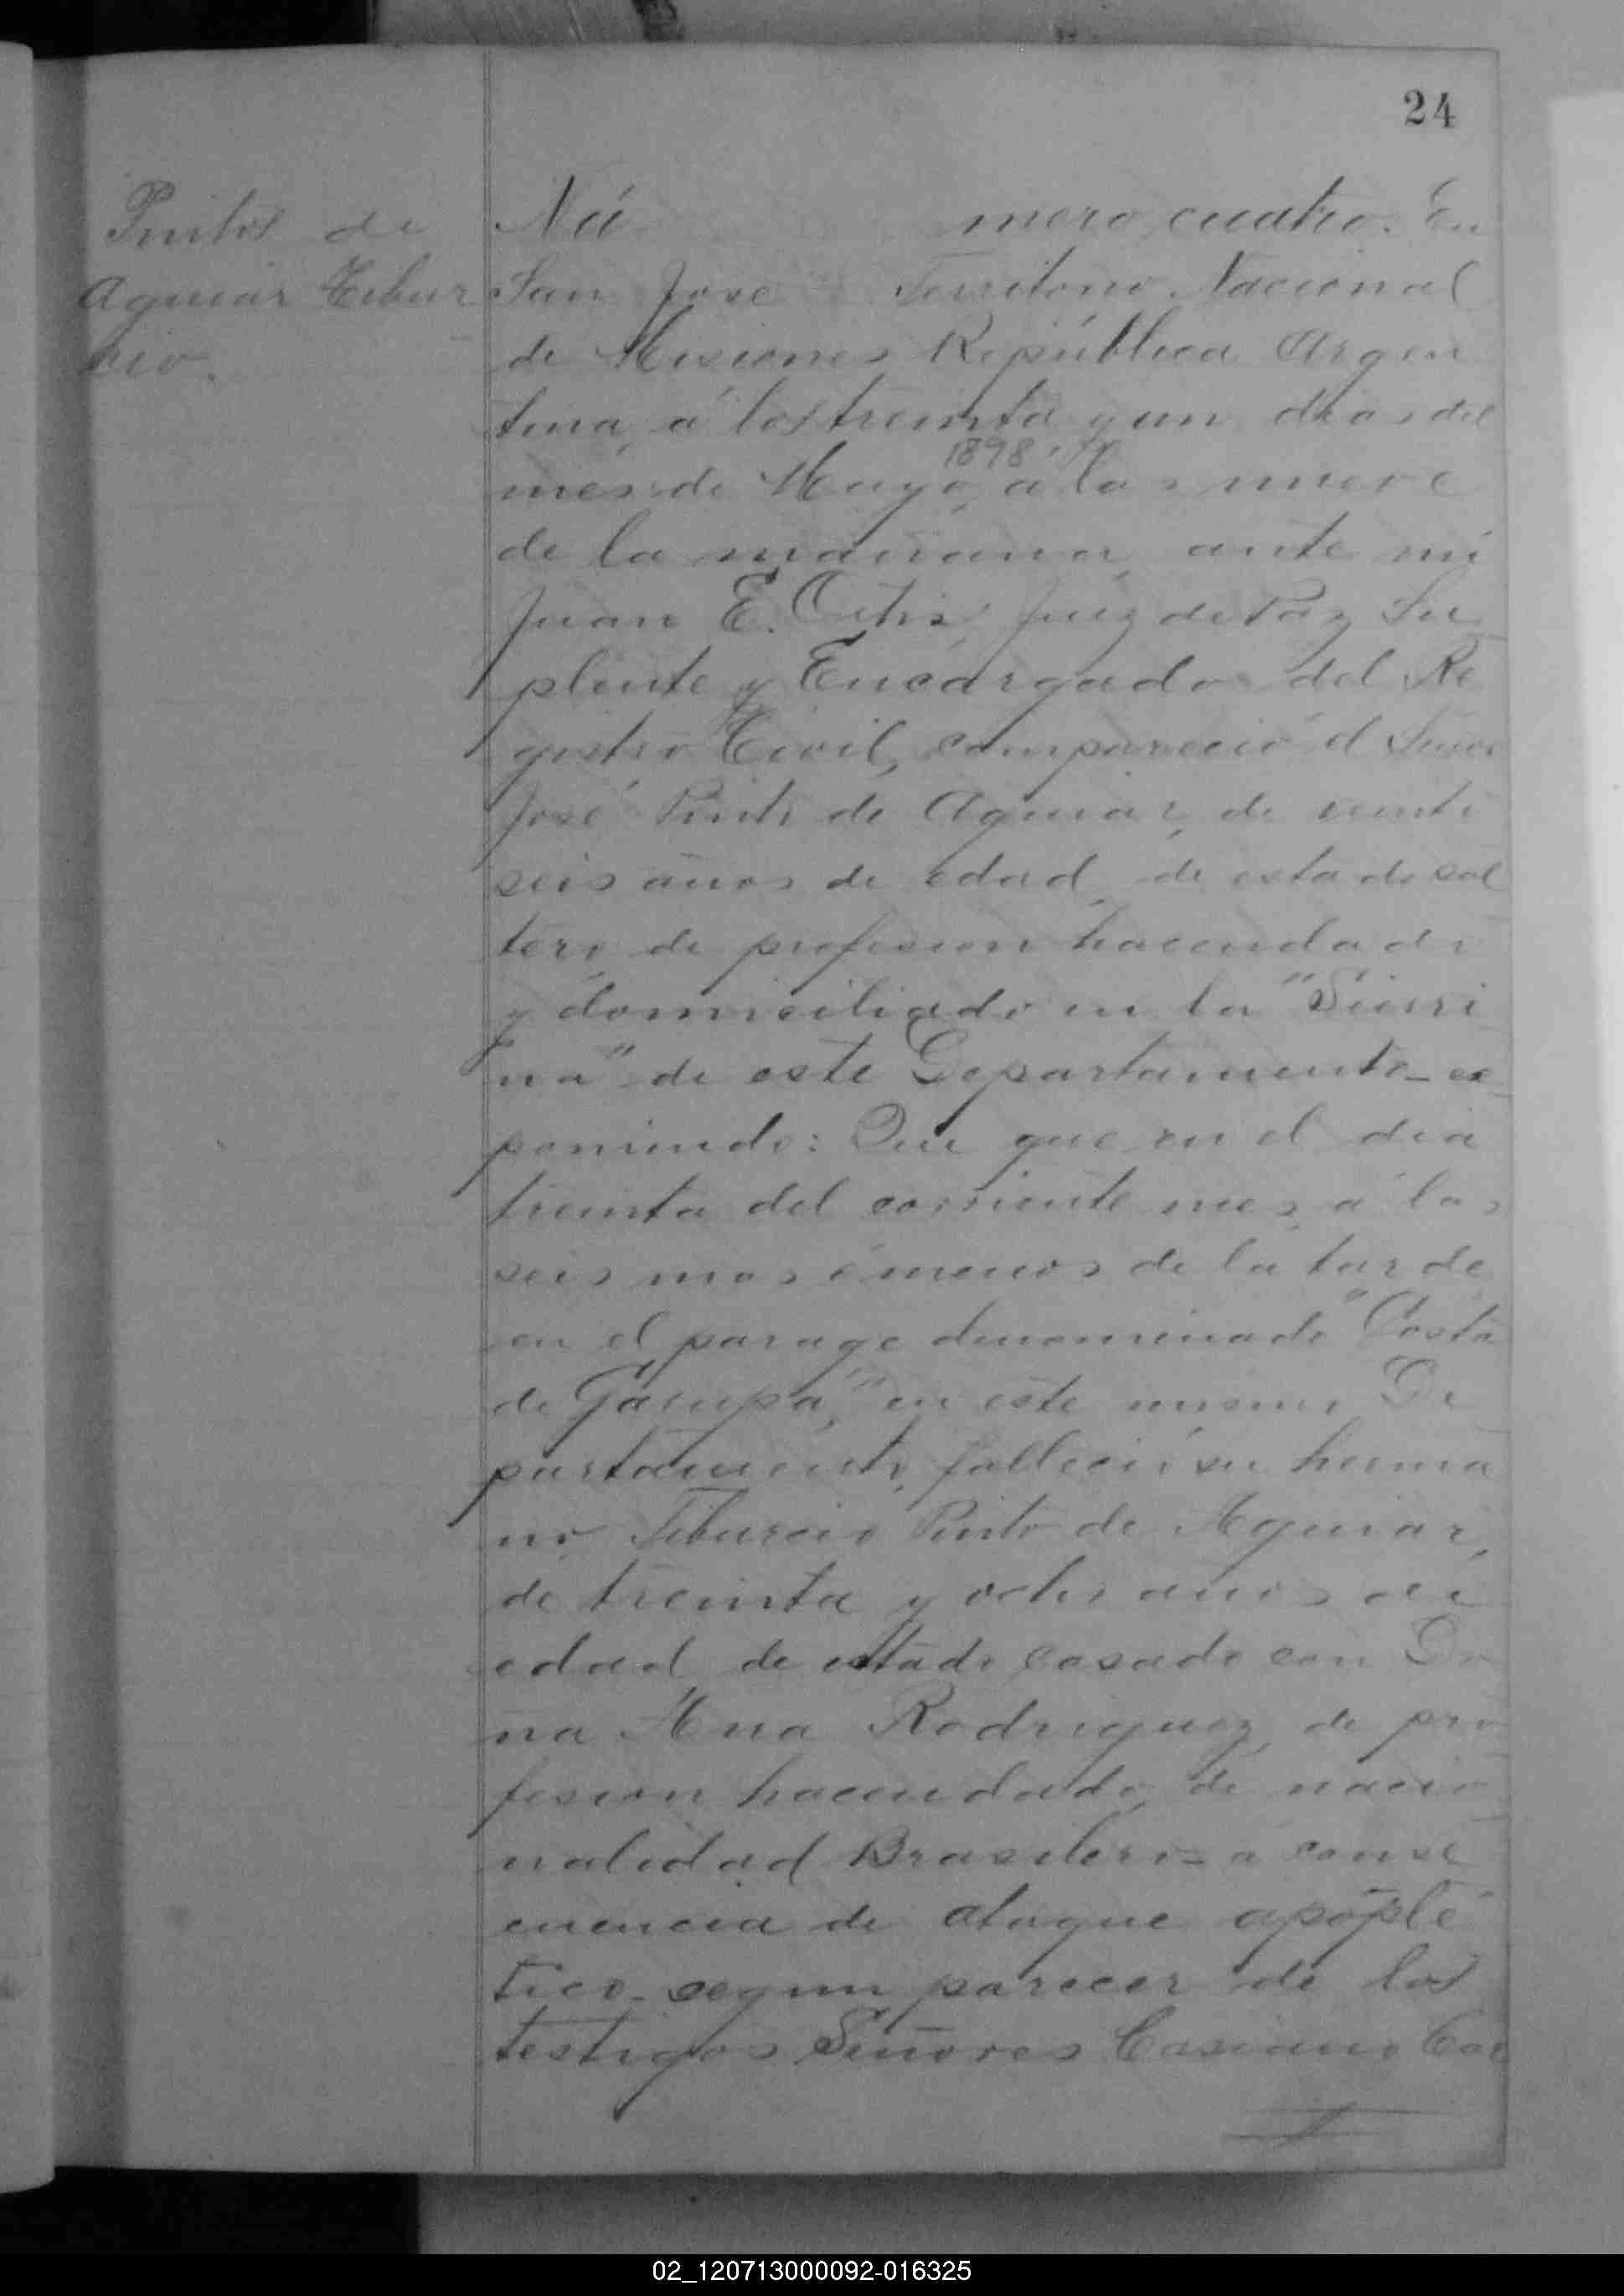 24
Pintos de
Aguiar Tibur
cio.
Nú mero cuatro. En
San José Territorio Nacional
de Misiones República Argen
tina, á los treinta y un dias del
mes de Mayo, 1898 á las nueve
de la mañana, ante mi
Juan E. Juez de Paz Su
plente y Encargado del Re
gistro Civil, compareció el Señor
José Pinto de Aguiar, de veinti
seis años de edad, de estado sol
tero de profesion hacendado
y domiciliado en la "Sierri
na" de este Departamento_ ex
poniendo: Que que en el dia
treinta del corriente mes, á las
seis mas ó menos de la tarde,
en el parage denominado "Costa
de Garupá," en este mismo De
partamento, falleció su herma
no Tiburcio Pinto de Aguiar,
de treinta y ocho años de
edad, de estado casado con Do
ña Ana Rodriguez, de pro
fesion hacendado, de nacio
nalidad Brasilero= á conse
cuencia de ataque apoplé
tico_ segun parecer de los
testigos Señores Casiano Car
02_120713000092-016325